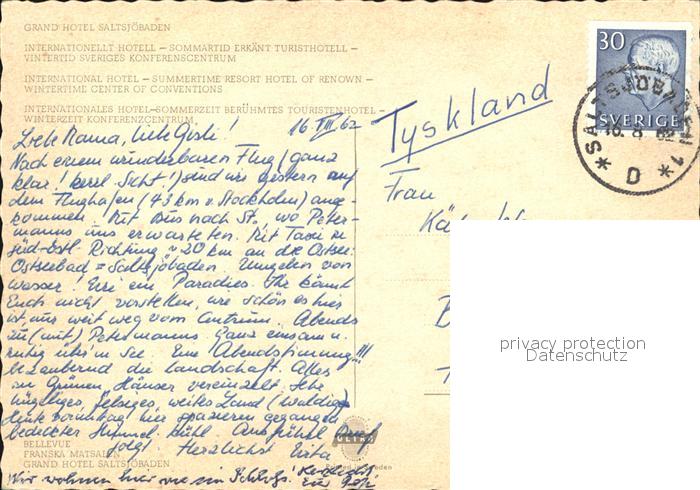 GRAND HOTEL SALTSJÖBADEN
INTERNATIONELLT HOTELL – SOMMARTID ERKÄNT TURISTHOTELL –
VINTERTID SVERIGES KONFERENSCENTRUM
INTERNATIONAL HOTEL – SUMMERTIME RESORT HOTEL OF RENOWN –
WINTERTIME CENTER OF CONVENTIONS
INTERNATIONALES HOTEL–SOMMERZEIT BERÜHMTES TOURISTENHOTEL –
WINTERZEIT KONFERENZCENTRUM
16.VIII.62
Liebe Mama, liebe
Nach einem wunderbaren Flug (ganz
klar! herrl. Sicht!) sind wir gestern auf
dem Flughafen (43 km v. Stockholm) ange-
kommen. Mit Bus nach St., wo Peter-
manns uns erwarteten. Mit Taxi in
süd-östl. Richtung ~ 20 km an die Ostsee:
Ostseebad = Saltsjöbaden. Umgeben von
Wasser! Hier ein Paradies. Ihr könnt
Euch nicht vorstellen, wie schön es hier
ist, nur weit weg vom Centrum. Abends
zu (mit) Petermanns. Ganz einsam u.
ruhig über'm See. Eine Abendstimmung!!!
bezaubernd die Landschaft. Alles
im Grünen, Häuser vereinzelt. Sehr
hügeliges, felsiges, weites Land (waldig)
Heute Vormittag hier spazieren gegangen
bedeckter Himmel. Kühl. Ausführl. Brief
folgt. Herzlichst
BELLEVUE
FRANSKA MATSALEN
GRAND HOTEL SALTSJÖBADEN
Wir wohnen hier wie im Schloss!
Tyskland
Frau
30
SVERIGE
SALTSJÖBADEN 1
16. 8. 62
D
ULTRA
privacy protection
Datenschutz